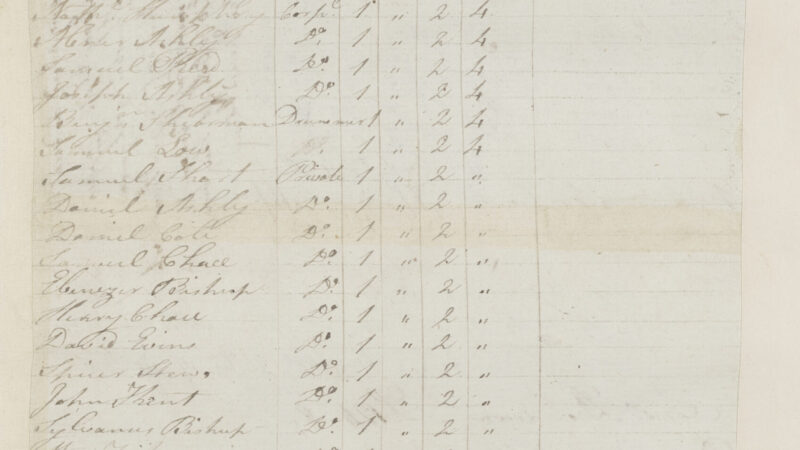 Corpl 1 " 2 4
Abner Ashley Do. 1 " 2 4
Samuel Do. 1 " 2 4
Joseph Ashley Do. 1 " 2 4
Benjn Drummer 1 " 2 4
Samuel Low 1 " 2 4
Samuel Private 1 " 2 "
Daniel Ashley Do. 1 " 2 "
Daniel Cole Do. 1 " 2 "
Samuel Chace Do. 1 " 2 "
Ebenezer Bishup Do. 1 " 2 "
Henry Chace Do. 1 " 2 "
David Evins Do. 1 " 2 "
Do. 1 " 2 "
John Kent Do. 1 " 2 "
Sylvanus Bishup Do. 1 " 2 "